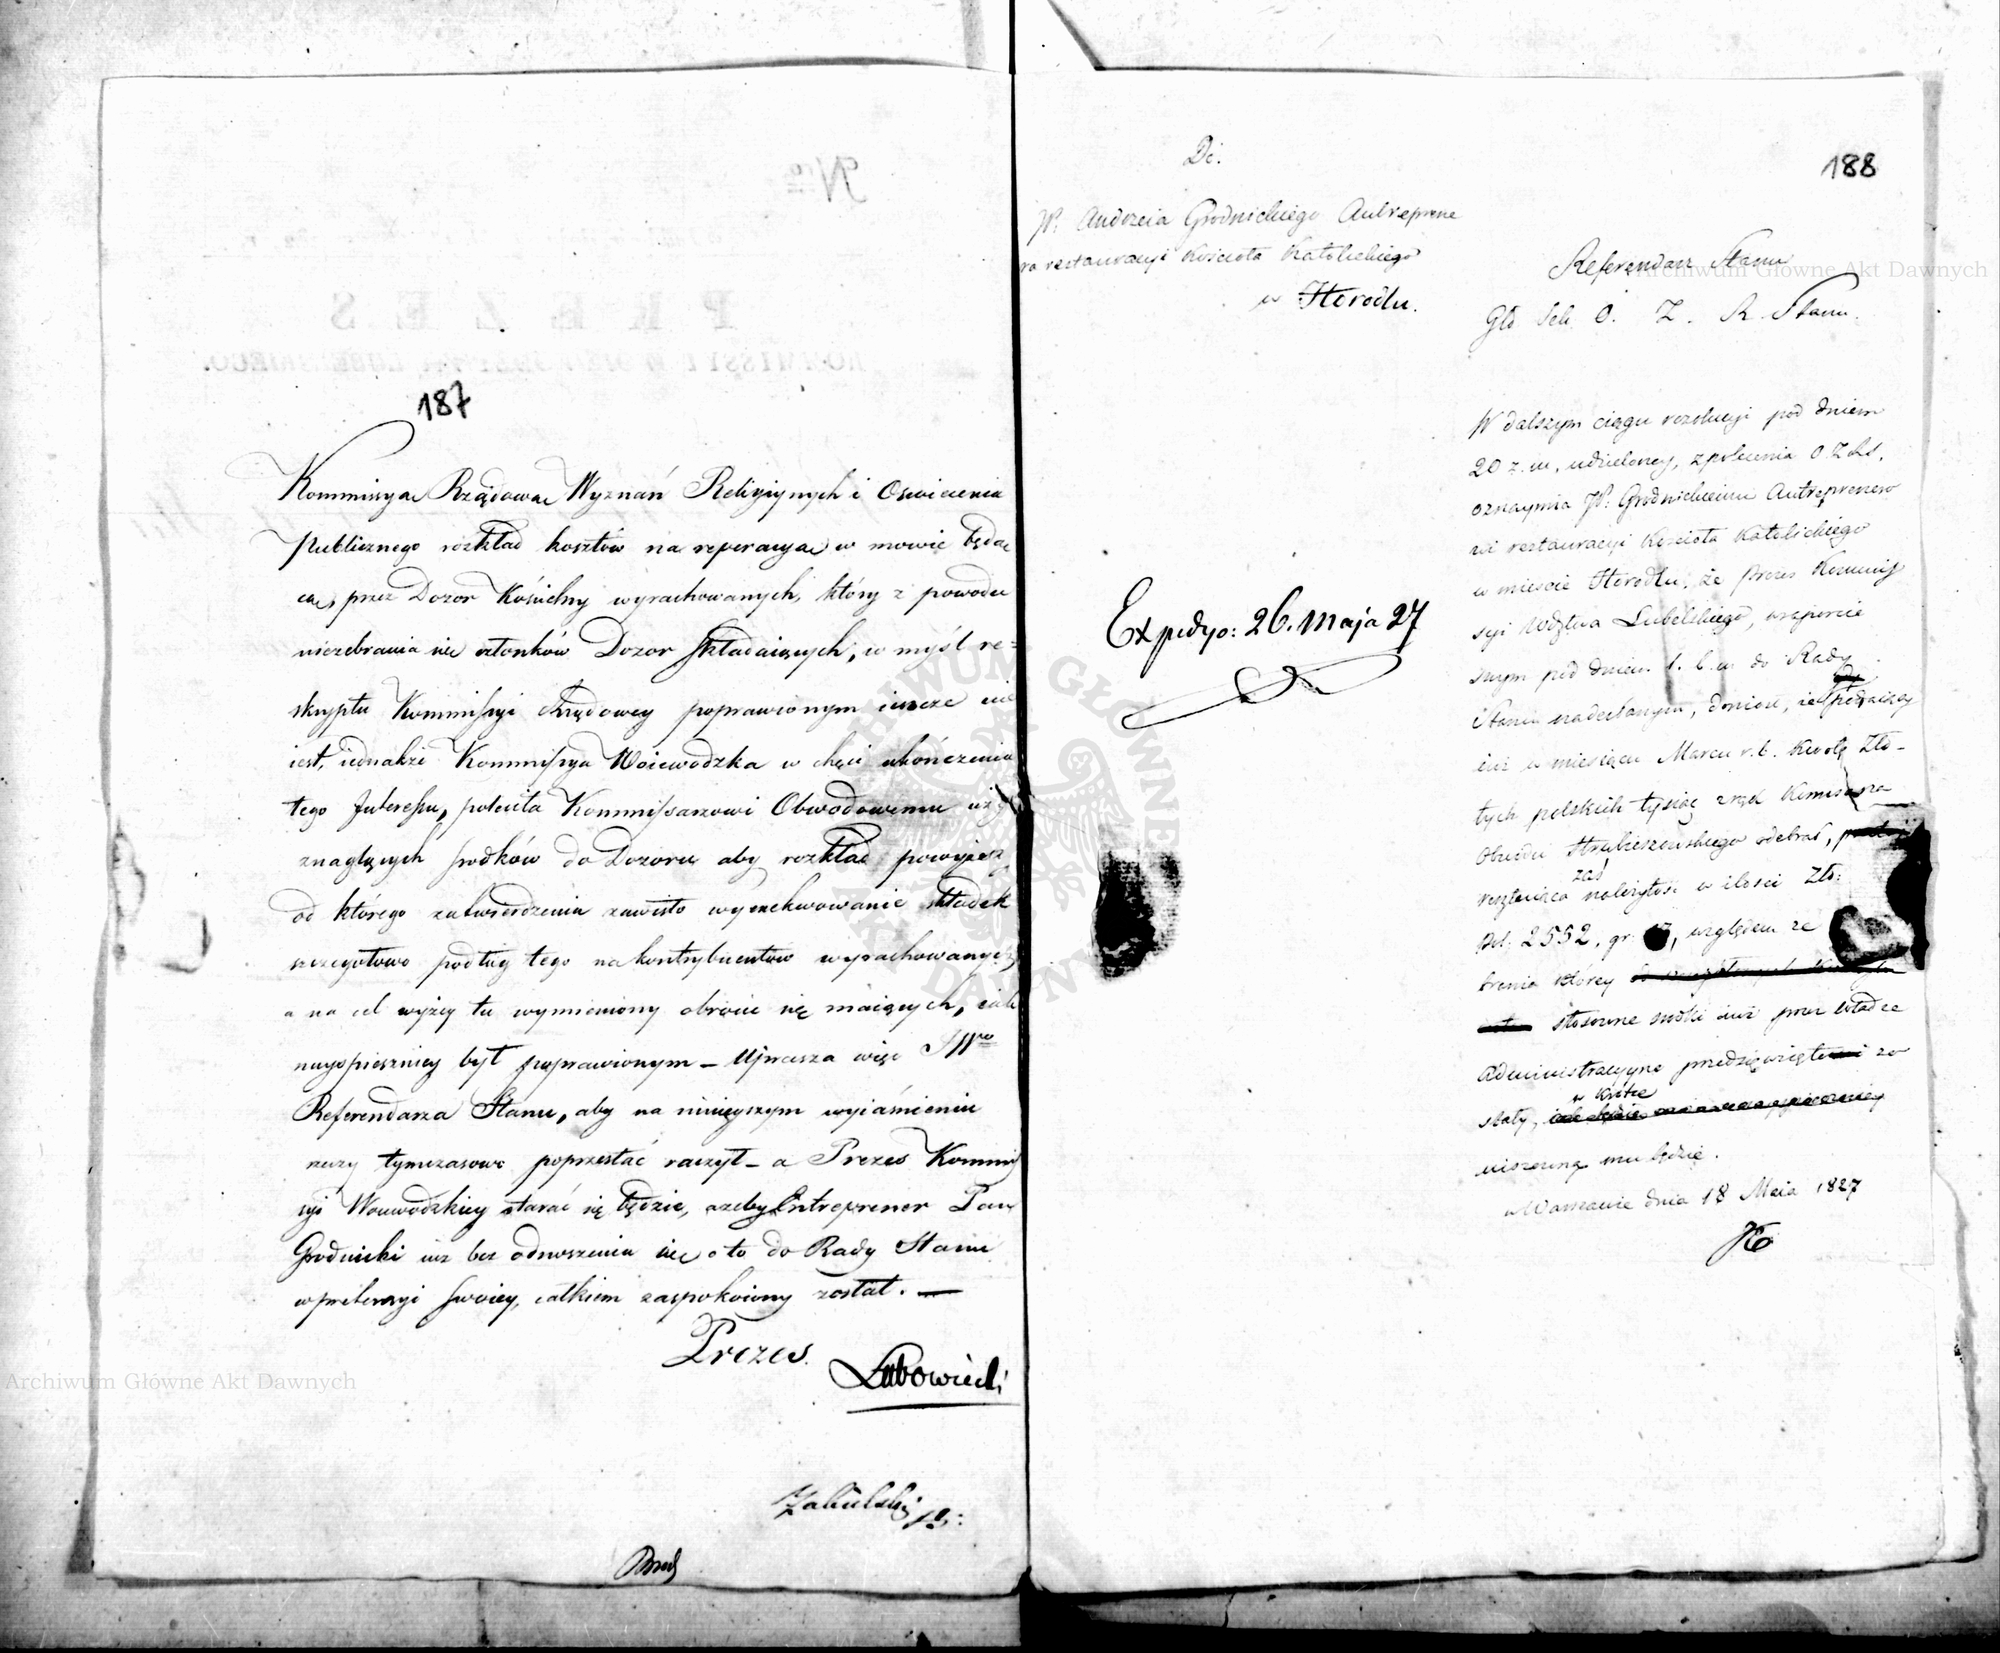 187
Kommissya Rządowa Wyznań Religiynych i Oświecenia
Publicznego rozkład kosztów na reperacyą w mowie będą
cą, przez Dozor Kościelny wyrachowanych, który z powodu
niezebrania się członków Dozor składaiących, w myśl re=
skryptu Kommissyi Rządowey poprawionym ieszcze nie
iest, iednakże Kommissya Woiewodzka w chęci ukończenia
tego Interessu, poleciła Kommissarzowi Obwodowemu użyć
znaglących srodków do Dozoru aby rozkład powyższy
od którego zatwierdzenia zawisło wyexekwowanie składek
szczegółowo podług tego na kontrybuentów wyrachowanych
a na cel wyżey tu wymieniony obrócić się maiących, iak
nayspieszniey był poprawionym – Uprasza więc JW
Referendarza Stanu, aby na ninieyszym wyiaśnieniu
rzeczy tymczasowo poprzestać raczył – a Prezes Kommis
syi Woiewodzkiey starać się będzie, ażeby Entreprener Pan
Grodnicki iuż bez odnoszenia się o to do Rady Stanu
w pretensyi swoiey, całkiem zaspokoiony został. —
Prezes.
Lubowiecki
188
Do.
W. Andrzeia Grodnickiego Antreprene
ra restauracyi Kościoła Katolickiego
w Horodlu.
Expedyo: 26. Maja 27
Referendarz Stanu
Gło Sek. O. Z. R. Stanu.
W dalszym ciągu rezolucyi pod dniem
20 z. m. udzieloney, z polecenia O. Z. R. S.
oznaymia W. Grodnickiemu Antreprenero
wi restauracyi Kościoła Katolickiego
w mieście Horodlu, że Prezes Kommis
syi Wdztwa Lubelskiego, w raporcie
swym pod dniem 1. b. m. do Rady
Stanu nadesłanym, doniósł, że
iuż w miesiącu Marcu r. b. kwotę Zło-
tych polskich tysiąc z rąk Komissarza
Obwodu Hrubieszowskiego odebrał,
resztuiąca zaś należytość w ilości Zło:
Pol: 2552, gr. względem ze
brania którey
stosowne srodki iuż przez Władze
Administracyine przedsięwzięte zo
stały, w krótce
uiszczoną mu będzie.
w Warszawie dnia 18 Maia 1827
Archiwum Główne Akt Dawnych
Archiwum Główne Akt Dawnych
ARCHIWUM GŁÓWNE AKT DAWNYCH